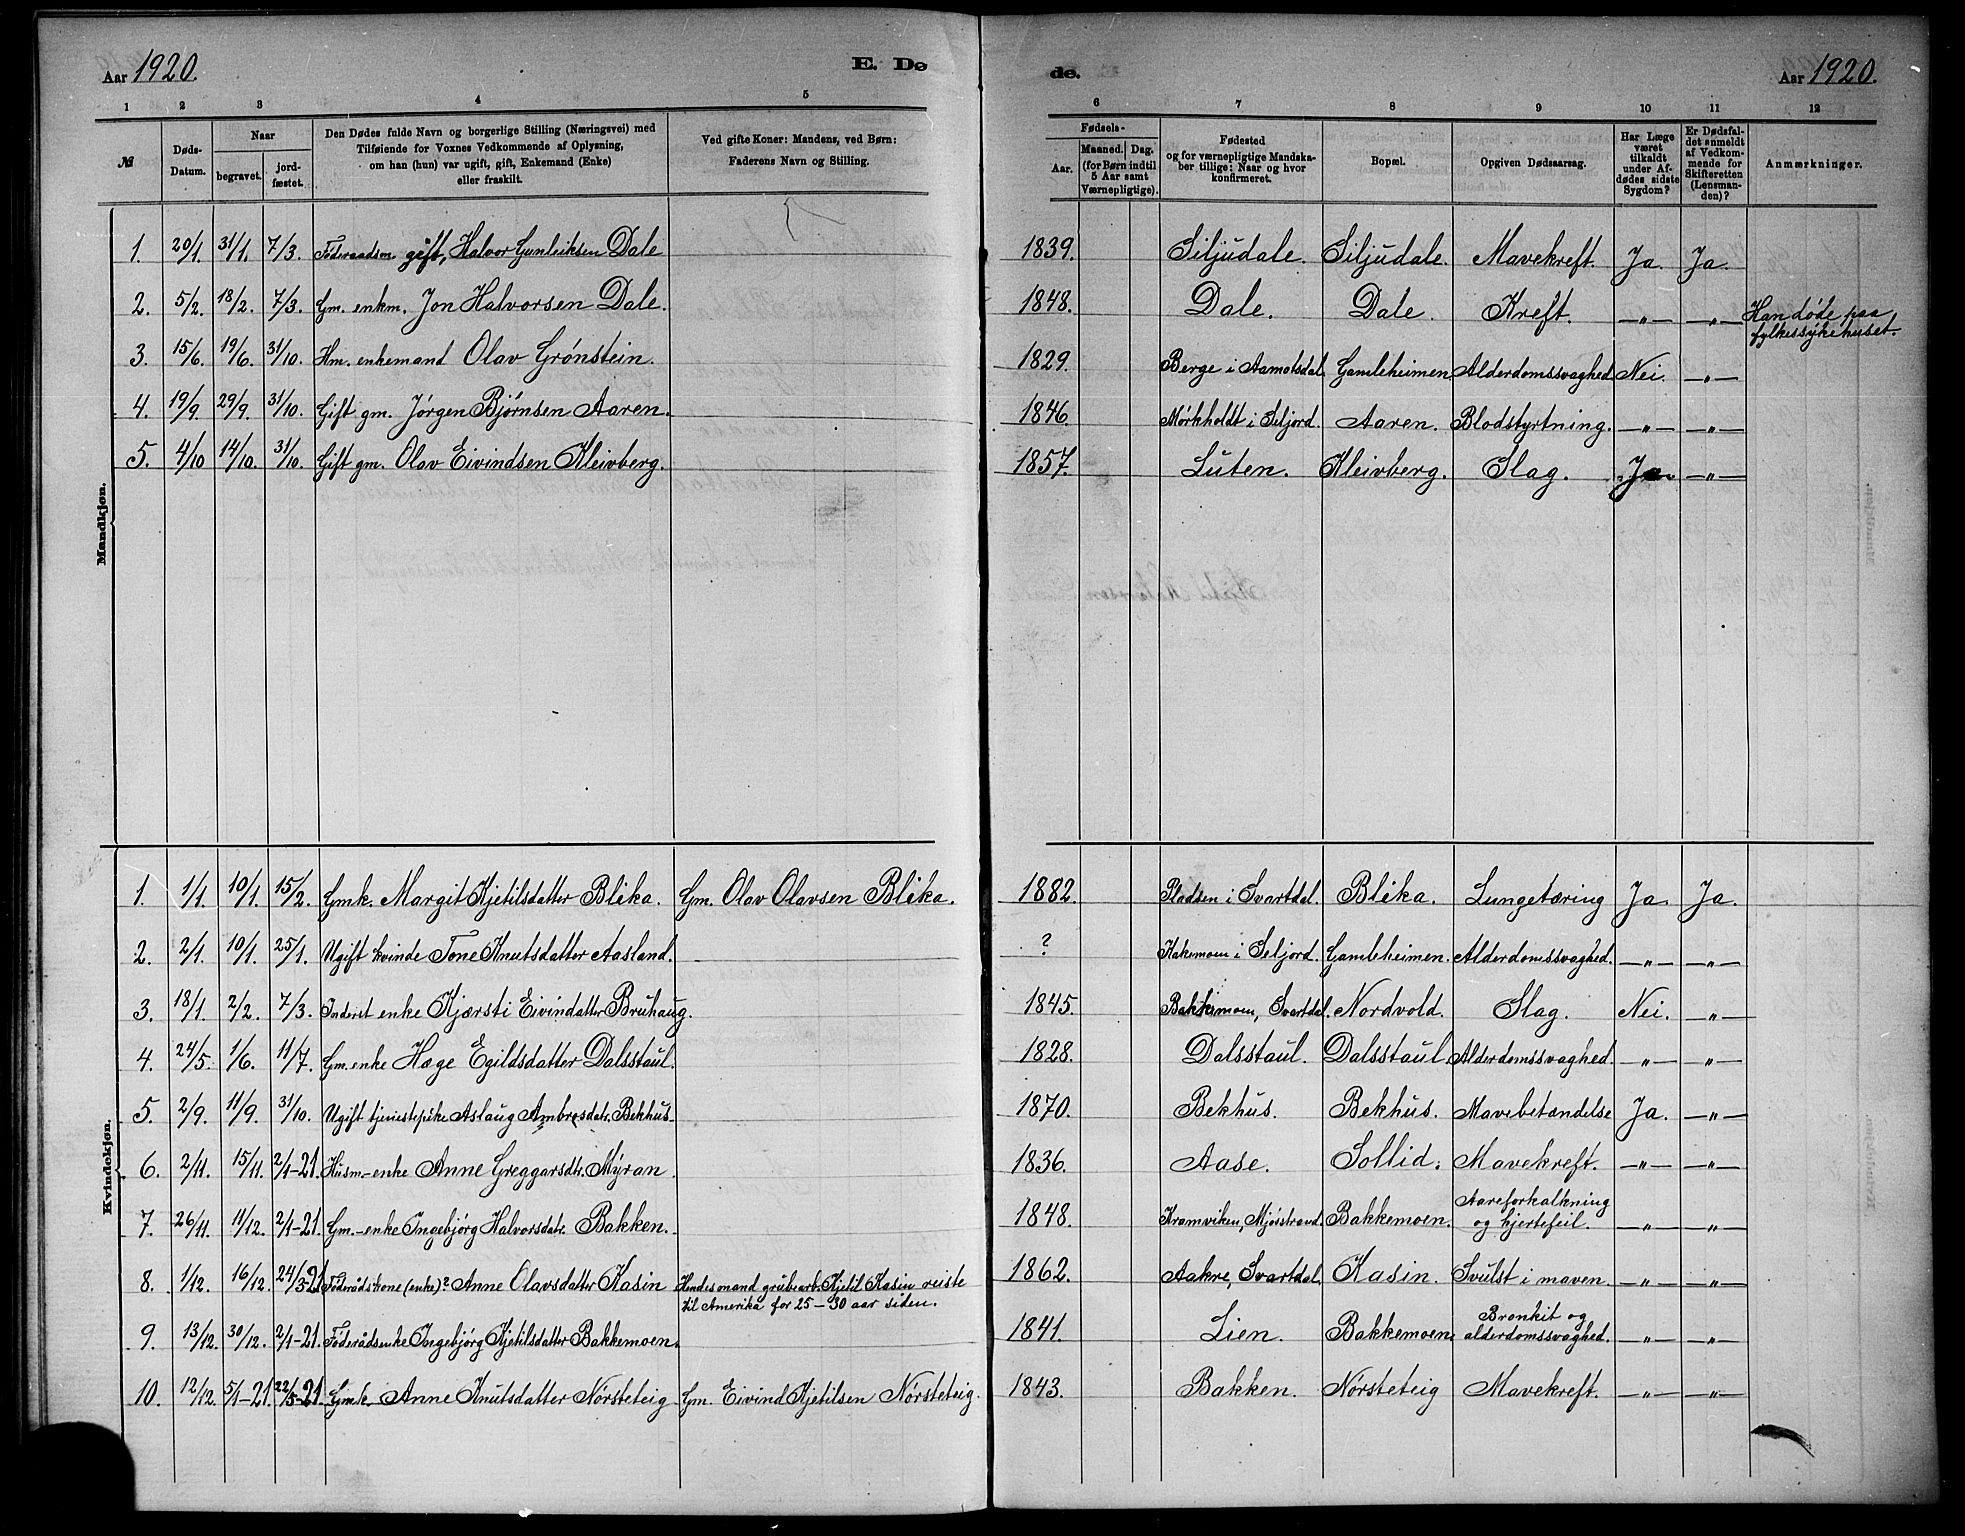 Aar 1920.
E. Dø
de.
Aar 1920.
1 2 3 4 5 6 7 8 9 10 11 12
№
Døds-
Datum.
Naar
begravet.
jord-
fæstet.
Den Dødes fulde Navn og borgerlige Stilling (Næringsvei) med
Tilføiende for Voxnes Vedkommende af Oplysning,
om han (hun) var ugift, gift, Enkemand (Enke)
eller fraskilt.
Ved gifte Koner: Mandens, ved Børn:
Faderens Navn og Stilling.
Fødsels-
Aar.
Maaned. Dag.
(for Børn indtil
5 Aar samt
Værnepligtige).
Fødested
og for værnepligtige Mandska-
ber tillige: Naar og hvor
konfirmeret.
Bopæl.
Opgiven Dødsaarsag.
Har Læge
været
tilkaldt
under Af-
dødes sidste
Sygdom?
Er Dødsfal-
det anmeldt
af Vedkom-
mende for
Skifteretten
(Lensman-
den)?
Anmærkninger.
Mandkjøn.
1. 20/1. 31/1. 7/3. Føderaadsm gift, Halvor Gunleiksen Dale 1839. Siljudale. Siljudale. Mavekreft. Ja. Ja.
2. 5/2. 18/2. 7/3. Gm. enkm. Jon Halvorsen Dale. 1848. Dale. Dale. Kreft. —"— —"— Han døde paa
fylkessykehuset.
3. 15/6. 19/6. 31/10. Hm. enkemand Olav Grønstein. 1829. Berge i Aamotsdal. Gamleheimen. Alderdomssvaghed. Nei. —"—
4. 19/9. 29/9. 31/10. Gift gm. Jørgen Bjørnsen Aaren. 1846. Mørkholdt i Seljord. Aaren. Blodstyrtning. —"— —"—
5. 4/10 14/10. 31/10. Gift gm. Olav Eivindsen Kleivberg. 1857. Luten. Kleivberg. Slag. Ja. —"—
Kvindekjøn.
1. 1/1. 10/1. 15/2. Gmk. Margit Kjetilsdatter Blika. Gm. Olav Olavsen Blika. 1882. Pladsen i Svartdal. Blika. Lungetæring Ja. Ja.
2. 2/1. 10/1. 25/1. Ugift kvinde Tone Knutsdatter Aasland. ? Kakemoen i Seljord. Gamleheimen. Alderdomssvaghed. —"— —"—
3. 18/1. 2/2. 7/3. Inderst enke Kjærsti Eivindatter Bruhaug. 1845. Bakkemoen, Svartdal. Nordvold. Slag. Nei. —"—
4. 24/5. 1/6. 11/7. Gm. enke Hæge Egildsdatter Dalsstaul. 1828. Dalsstaul. Dalsstaul Alderdomssvaghed. —"— —"—
5. 2/9. 11/9. 31/10. Ugift tjenestepike Aslaug Ambrosdatr. Bekhus. 1870. Bekhus. Bekhus. Mavebetændelse Ja. —"—
6. 2/11. 15/11. 2/1-21. Husm-enke Anne Greggarsdtr. Myran. 1836. Aase. Sollid. Mavekreft. —"— —"—
7. 26/11. 11/12. 2/1-21. Gm.-enke Ingebjørg Halvorsdatr. Bakken. 1848. Kromviken, Mjøsstrand. Bakkemoen. Aareforkalkning
og hjertefeil. —"— —"—
8. 1/12. 16/12. 24/3-21 Føderådskone (enke)? Anne Olavsdatter Kasin Hendes mand grubearb. Kjetil Kasin reiste
til Amerika for 25-30 aar siden. 1862. Aakre, Svartdal. Kasin. Svulst i maven. —"— —"—
9. 13/12. 30/12. 2/1-21. Føderådsenke Ingebjørg Kjetilsdatter Bakkemoen. 1841. Lien. Bakkemoen. Bronkit og
alderdomssvaghed. —"— —"—
10. 12/12. 5/1-21. 22/5-21. Gmk. Anne Knutsdatter Nørsteteig Gm. Eivind Kjetilsen Nørsteteig. 1843. Bakken. Nørsteteig Mavekreft. —"— —"—